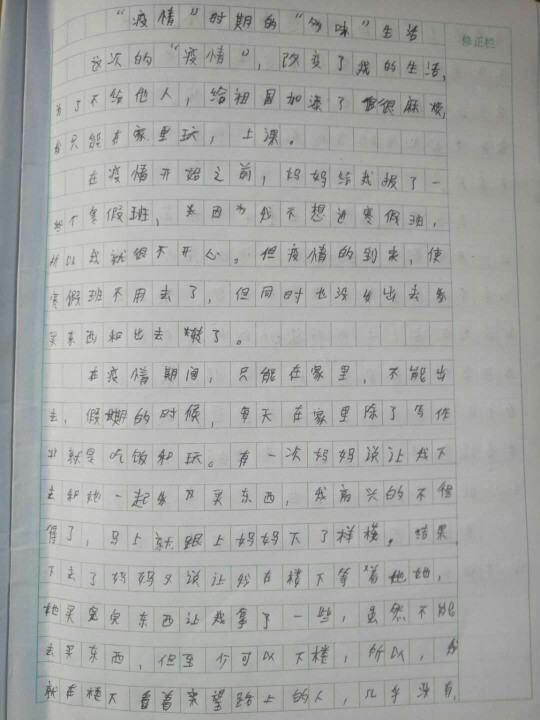 “疫情”时期的“多味”生活
修正栏
这次的“疫情”，改变了我的生活，
为了不给他人，给祖国加添了麻烦，
我只能在家里玩，上课。
在疫情开始之前，妈妈给我报了一
个寒假班，因为我不想进寒假班，
所以我就很不开心。但疫情的到来，使
寒假班不用去了，但同时也没办出去
买东西和出去玩了。
在疫情期间，只能在家里，不能出
去，假期的时候，每天在家里除了写作
业就是吃饭和玩。有一次妈妈说让我下
去和她一起买东西，我高兴的不得
得了，马上就跟上妈妈下了楼。结果
下去了妈妈又说让我在楼下等着她，
她买完东西让我拿了一些，虽然不能
去买东西，但至少可以下楼，所以，我
就在楼下看着来望路上的人，几乎没有